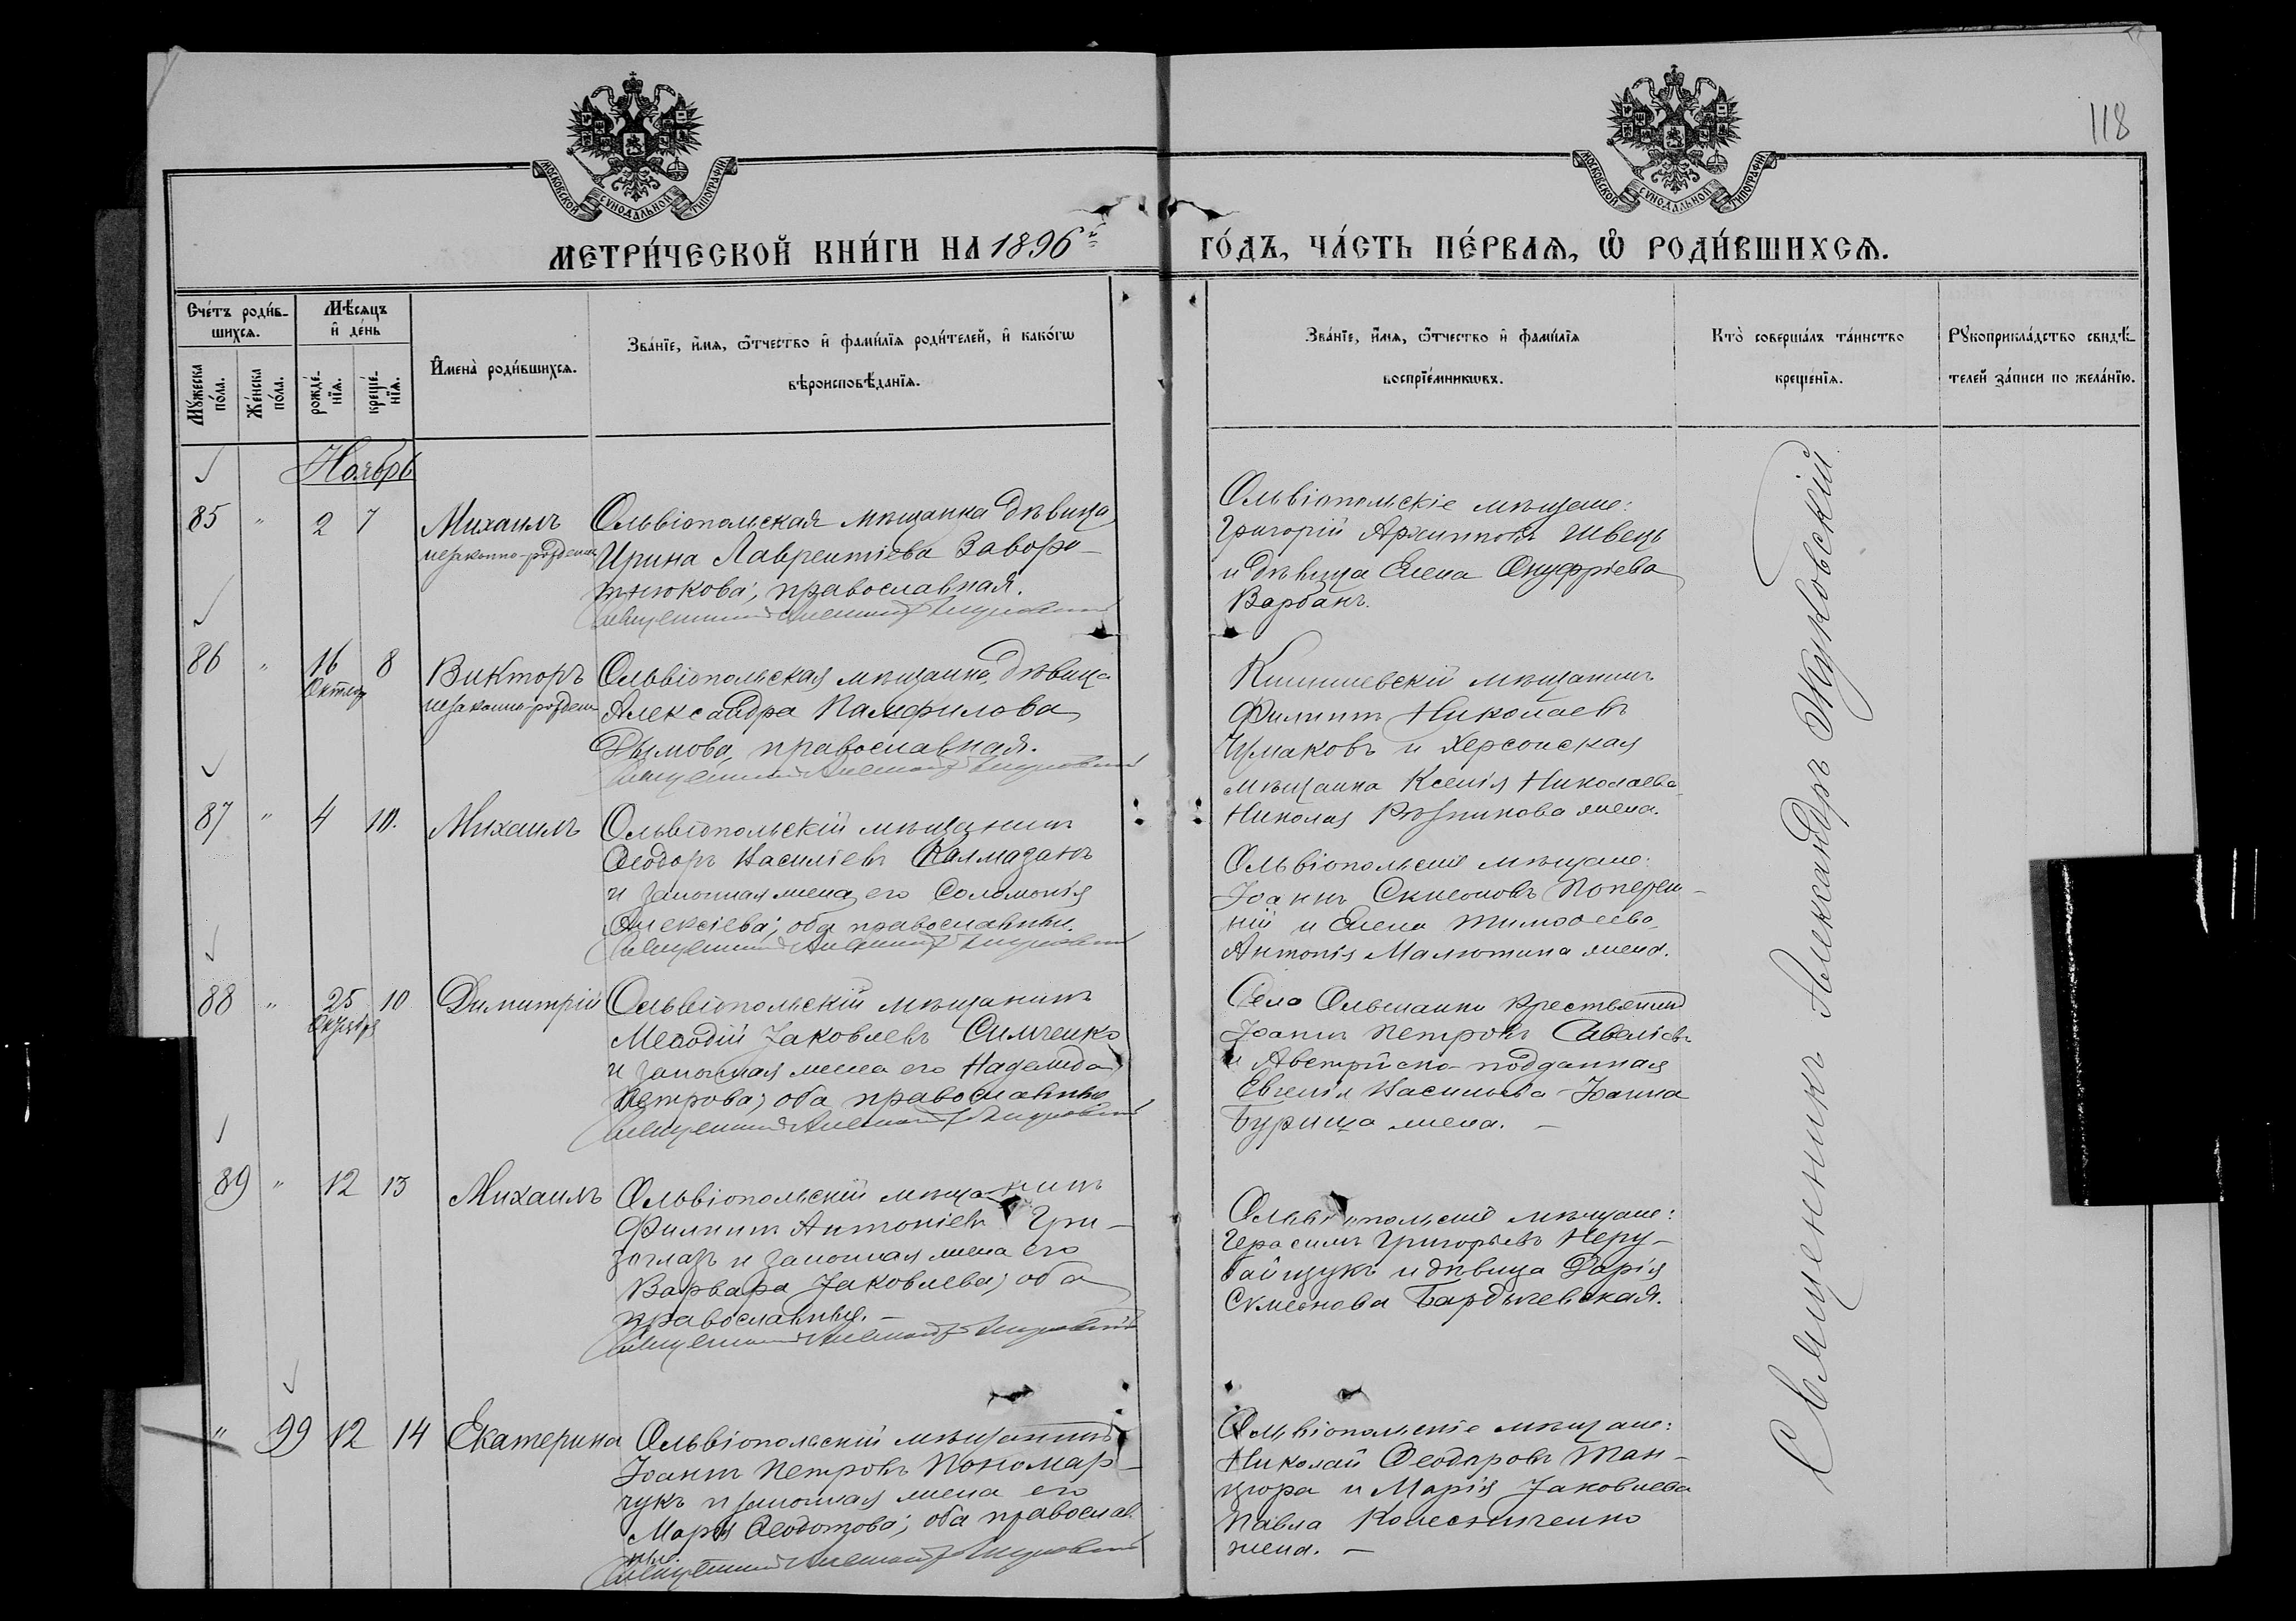 118
МОСКОВСКОЙ СУНОДАЛЬНОЙ ТИПОГРАФІИ
МОСКОВСКОЙ СУНОДАЛЬНОЙ ТИПОГРАФІИ
МЕТРИ́ЧЕСКОЙ КНИ́ГИ НА 1896й
ГО́ДЪ, ЧА́СТЬ ПЕ́РВАѦ, Ѡ҆ РОДИ́ВШИХСѦ.
Сче́тъ роди́в-
шихсѧ.
Мѣ́сѧцъ
и҆ де́нь
Мꙋ́жеска по́ла.
Же́нска по́ла.
рожде́-
нїѧ.
креще́-
нїѧ.
И҆мена̀ роди́вшихсѧ.
Зва́нїе, и҆́мѧ, ѻ҆́тчество и҆ фами́лїѧ роди́телей, и҆ како́гѡ
вѣроисповѣ́данїѧ.
Зва́нїе, и҆́мѧ, ѻ҆́тчество и҆ фами́лїѧ
воспрїе́мникѡвъ.
Кто̀ соверша́лъ та́инство
креще́нїѧ.
Рꙋкоприкла́дство свидѣ́-
телей за́писи по жела́нїю.
Ноябрь
85 " 2 7 Михаилъ
незаконно-рожденн
Ольвіопольская мѣщанка дѣвица
Ирина Лаврентіева Заворо-
тнюкова; православная.
Священникъ Александръ Жуковскій
Ольвіопольскіе мѣщане:
Григорій Архиповъ Швецъ
и дѣвица Елена Онуфріева
Варбанъ.
86 " 16 Октяб 8 Викторъ
незаконно-рожден
Ольвіопольская мѣщанка, дѣвица
Александра Памфилова
Дымова, православная.
Священникъ Александръ Жуковскій
Кишиневскій мѣщанинъ
Филиппъ Николаевъ
Чумаковъ и Херсонская
мѣщанка Ксенія Николаева
Николая жена.
87 " 4 10. Михаилъ
Ольвіопольскій мѣщанинъ
Ѳеодоръ Василіевъ Калмазанъ
и законная жена его Соломонія
Алексіева; оба православные.
Священникъ Александръ Жуковскій
Ольвіопольскіе мѣщане:
Іоаннъ Симеоновъ Попереч-
ній и Елена Тимоѳеева
Антонія Малютина жена.
88 " 25 Октября 10 Димитрій
Ольвіопольскій мѣщанинъ
Меѳодій Іаковлевъ Симченко
и законная жена его Надежда
Петрова; оба православные
Священникъ Александръ Жуковскій
Села Ольшанки крестьянинъ
Іоаннъ Петровъ Савеліевъ
и Австрійско-подданная
Евгенія Васильева Іоанна
Бурища жена. —
89 " 12 13 Михаилъ
Ольвіопольскій мѣщанинъ
Филиппъ Антоніевъ Гри-
зоглазъ и законная жена его
Варвара Іаковлева; оба
православные. —
Священникъ Александръ Жуковскій
Ольвіопольскіе мѣщане:
Герасимъ Григорьевъ Неру-
байщукъ и дѣвица Дарія
Симеонова Бардычевская.
" 99 12 14 Екатерина
Ольвіопольскій мѣщанинъ
Іоаннъ Петровъ Пономар-
чукъ и законная жена его
Марія Ѳеодотова; оба православ-
ные.
Священникъ Александръ Жуковскій
Ольвіопольскіе мѣщане:
Николай Ѳеодоровъ Тан-
цюра и Марія Іаковлева
Павла Колесниченко
жена. —
Священникъ Александръ Жуковскій